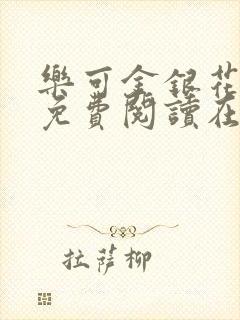 樂可金銀花
免費閱讀在
拉薩柳